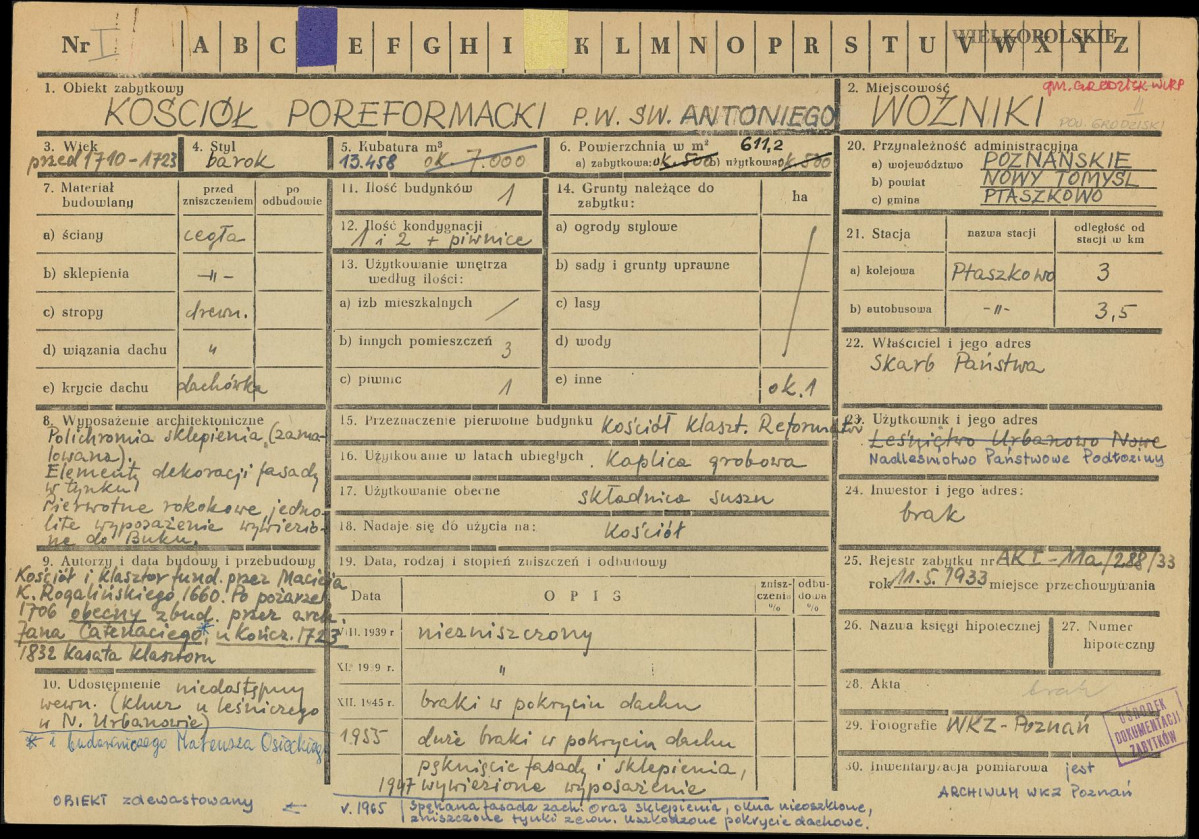 Nr I A B C E F G H I K L M N O P R S T U V W X Y Z
WIELKOPOLSKIE
1. Obiekt zabytkowy
KOŚCIÓŁ POREFORMACKI P.W. ŚW. ANTONIEGO
2. Miejscowość
gm. GRODZISK WLKP
WOŹNIKI
POW. GRODZISKI
3. Wiek
przed 1710-1723
4. Styl
barok
5. Kubatura m³
13.458 ok. 7.000
6. Powierzchnia w m² 611,2
a) zabytkowa: ok. 500 b) użytkowa: ok. 500
7. Materiał budowlany
przed zniszczeniem
po odbudowie
a) ściany cegła
b) sklepienia -"-
c) stropy drewn.
d) wiązania dachu "
e) krycie dachu dachówka
8. Wyposażenie architektoniczne
Polichromia sklepienia (zama-
lowana).
Elementy dekoracji fasady
w tynku
Pierwotne rokokowe jedno-
lite wyposażenie wywiezio-
ne do Buku.
9. Autorzy i data budowy i przebudowy
Kościół i klasztor fund. przez Macieja
K. Rogalińskiego 1660. Po pożarze
1706 obecny zbud. przez arch.
Jana Catenaciego*, ukończ. 1723
1832 Kasata klasztoru
10. Udostępnienie niedostępny
wewn. (klucz u leśniczego
w N. Urbanowie)
* i budowniczego Mateusza Osieckiego
OBIEKT zdewastowany ←
11. Ilość budynków 1
12. Ilość kondygnacji
1 i 2 + piwnice
13. Użytkowanie wnętrza
według ilości:
a) izb mieszkalnych /
b) innych pomieszczeń 3
c) piwnic 1
14. Grunty należące do
zabytku:
ha
a) ogrody stylowe
b) sady i grunty uprawne
c) lasy
d) wody
e) inne ok. 1
15. Przeznaczenie pierwotne budynku Kościół klaszt. Reformatów
16. Użytkowanie w latach ubiegłych Kaplica grobowa
17. Użytkowanie obecne składnica suszu
18. Nadaje się do użycia na: Kościół
19. Data, rodzaj i stopień zniszczeń i odbudowy
Data
OPIS
zniszczenia %
odbudowa %
VIII. 1939 r niezniszczony
XI. 1939 r. "
XII. 1945 r. braki w pokryciu dachu
1955 duże braki w pokryciu dachu
pęknięcie fasady i sklepienia,
1947 wywiezione wyposażenie
v. 1965 Spękana fasada zach. oraz sklepienia, okna nieoszklone,
zniszczone tynki zewn. uszkodzone pokrycie dachowe.
20. Przynależność administracyjna
a) województwo POZNAŃSKIE
b) powiat NOWY TOMYŚL
c) gmina PTASZKOWO
21. Stacja
nazwa stacji
odległość od stacji w km
a) kolejowa Ptaszkowo 3
b) autobusowa -"- 3,5
22. Właściciel i jego adres
Skarb Państwa
23. Użytkownik i jego adres
Leśnictwo Urbanowo Nowe
Nadleśnictwo Państwowe Podłoziny
24. Inwestor i jego adres:
brak
25. Rejestr zabytku nr AKI-11a/288/33
rok 11.5.1933 miejsce przechowywania
26. Nazwa księgi hipotecznej
27. Numer hipoteczny
28. Akta brak
29. Fotografie WKZ-Poznań
OŚRODEK
DOKUMENTACJI
ZABYTKÓW
30. Inwentaryzacja pomiarowa jest
ARCHIWUM WKZ Poznań